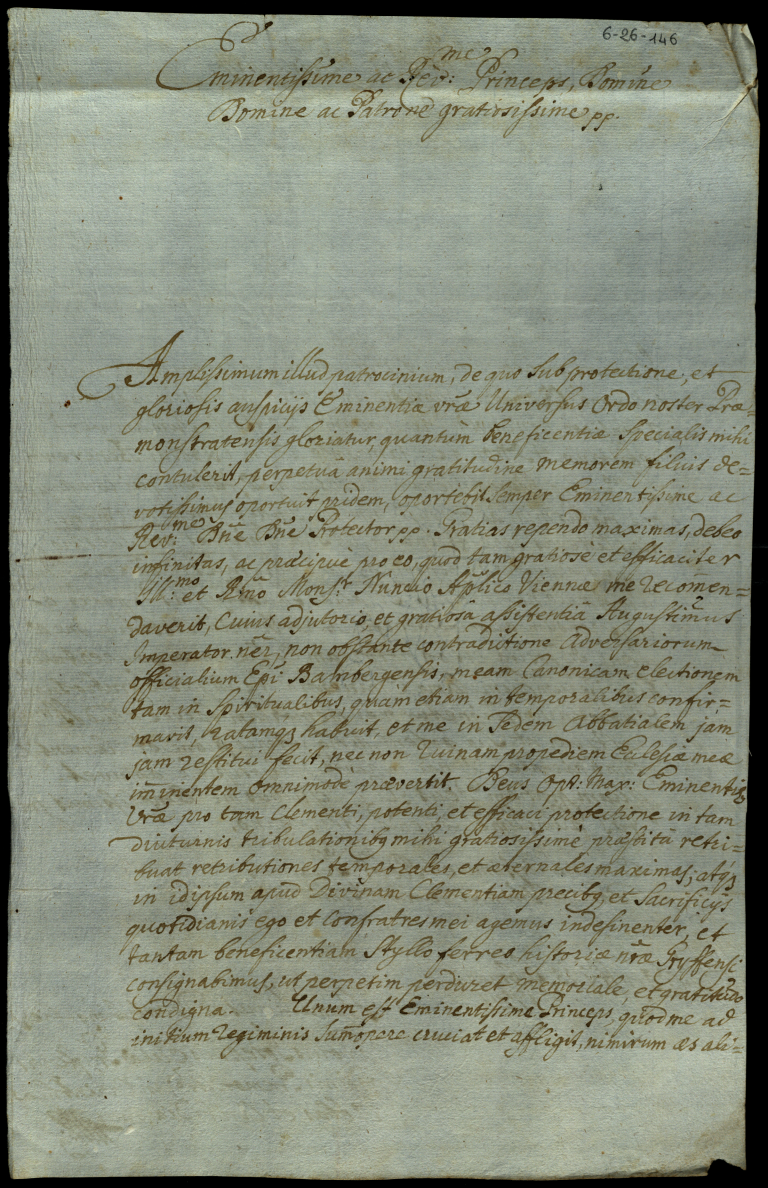 6-26-146
Eminentissime ac Rev:me Princeps, Domine
Domine ac Patrone gratiosissime pp.
Amplissimum illud patrocinium, de quo sub protectione, et
gloriosis auspicijs Eminentiæ vræ Universus Ordo noster Præ=
monstratensis gloriatur, quantum beneficentiæ specialis mihi
contulerit, perpetuâ animi gratitudine memorem filius de=
votissimus oportuit pridem, oportebit semper Eminentissime ac
Rev:me Dne Dne Protector pp. Gratias rependo maximas, debeo
infinitas, ac præcipuè pro eo, quod tam gratiosè et efficaciter
Ill:mo et Rmo Mons:r Nuncio Aplico Viennæ me recomen=
daverit, Cuius adjutorio, et gratiosâ assistentiâ Augustissimus
Imperator ner, non obstante contradictione Adversariorum
officialium Epi Bambergensis, meam Canonicam electionem
tam in Spiritualibus, quam etiam in temporalibus confir=
mavit, ratamq3 habuit, et me in Sedem Abbatialem jam
jam restitui fecit, nec non ruinam propediem Ecclesiæ meæ
imminentem omnimodè prævertit. Deus Opt: Max: Eminentiæ
Vræ pro tam Clementi, potenti, et efficaci protectione in tam
diuturnis tribulationibq mihi gratiosissimè præstitâ retri=
buat retributiones temporales, et æternales maximas; atq3
in idipsum apud Divinam Clementiam precibq, et Sacrificijs
quotidianis ego et Confratres mei agemus indesinenter, et
tantam beneficentiam Styllo ferreo historiæ nræ Gryffensi
consignabimus, ut perpetim perduret memoriale, et gratitudo
condigna. Unum est Eminentissime Princeps, quod me ad
initium regiminis summopere cruciat et affligit, nimirum æs ali=